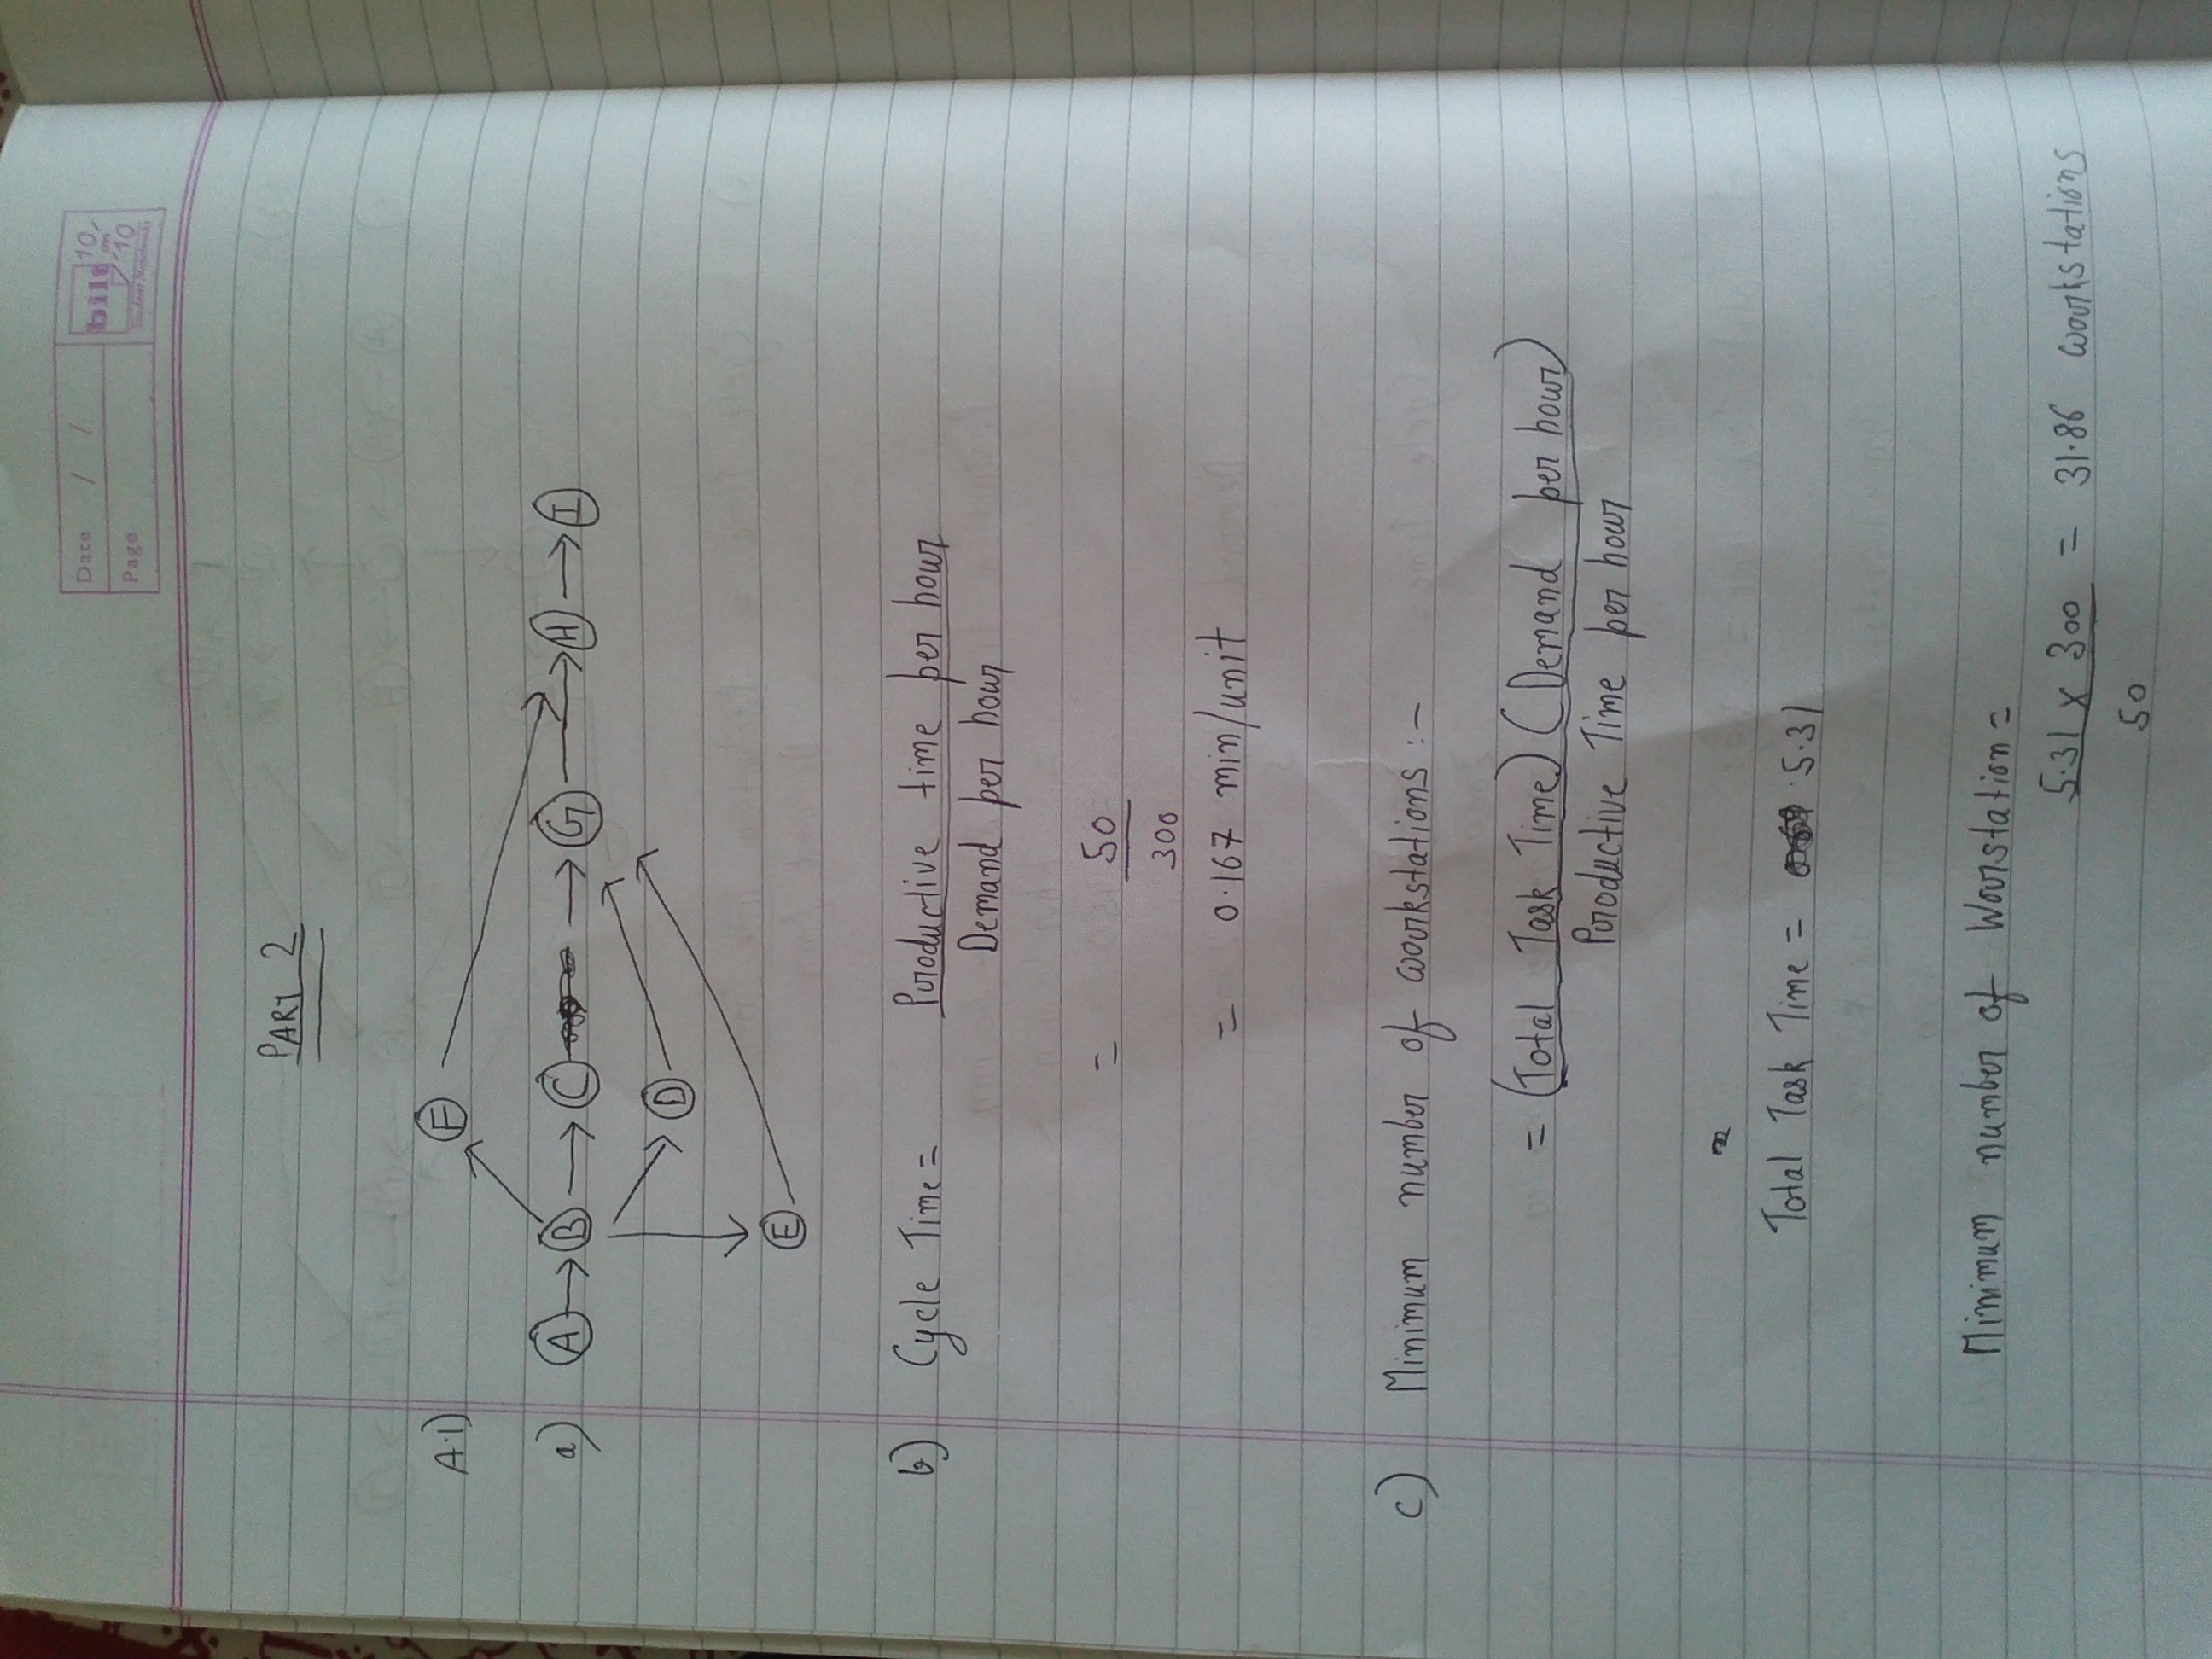 Date / /
Page
bilt
Student Notebooks
PART 2
A.1)
F
a) A → B → C → G → H → I
D
E
b) Cycle Time = Productive time per hour
Demand per hour
= 50
300
= 0.167 min/unit
c) Minimum number of workstations :-
= (Total Task Time) (Demand per hour)
Productive Time per hour
Total Task Time = 5.31
Minimum number of Worstation =
5.31 x 300 = 31.86 workstations
50